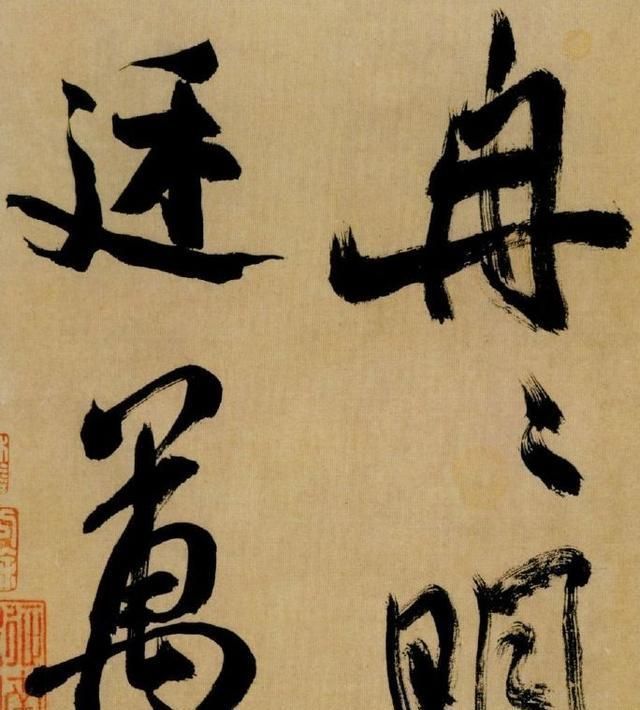 冉〻明
廷萬